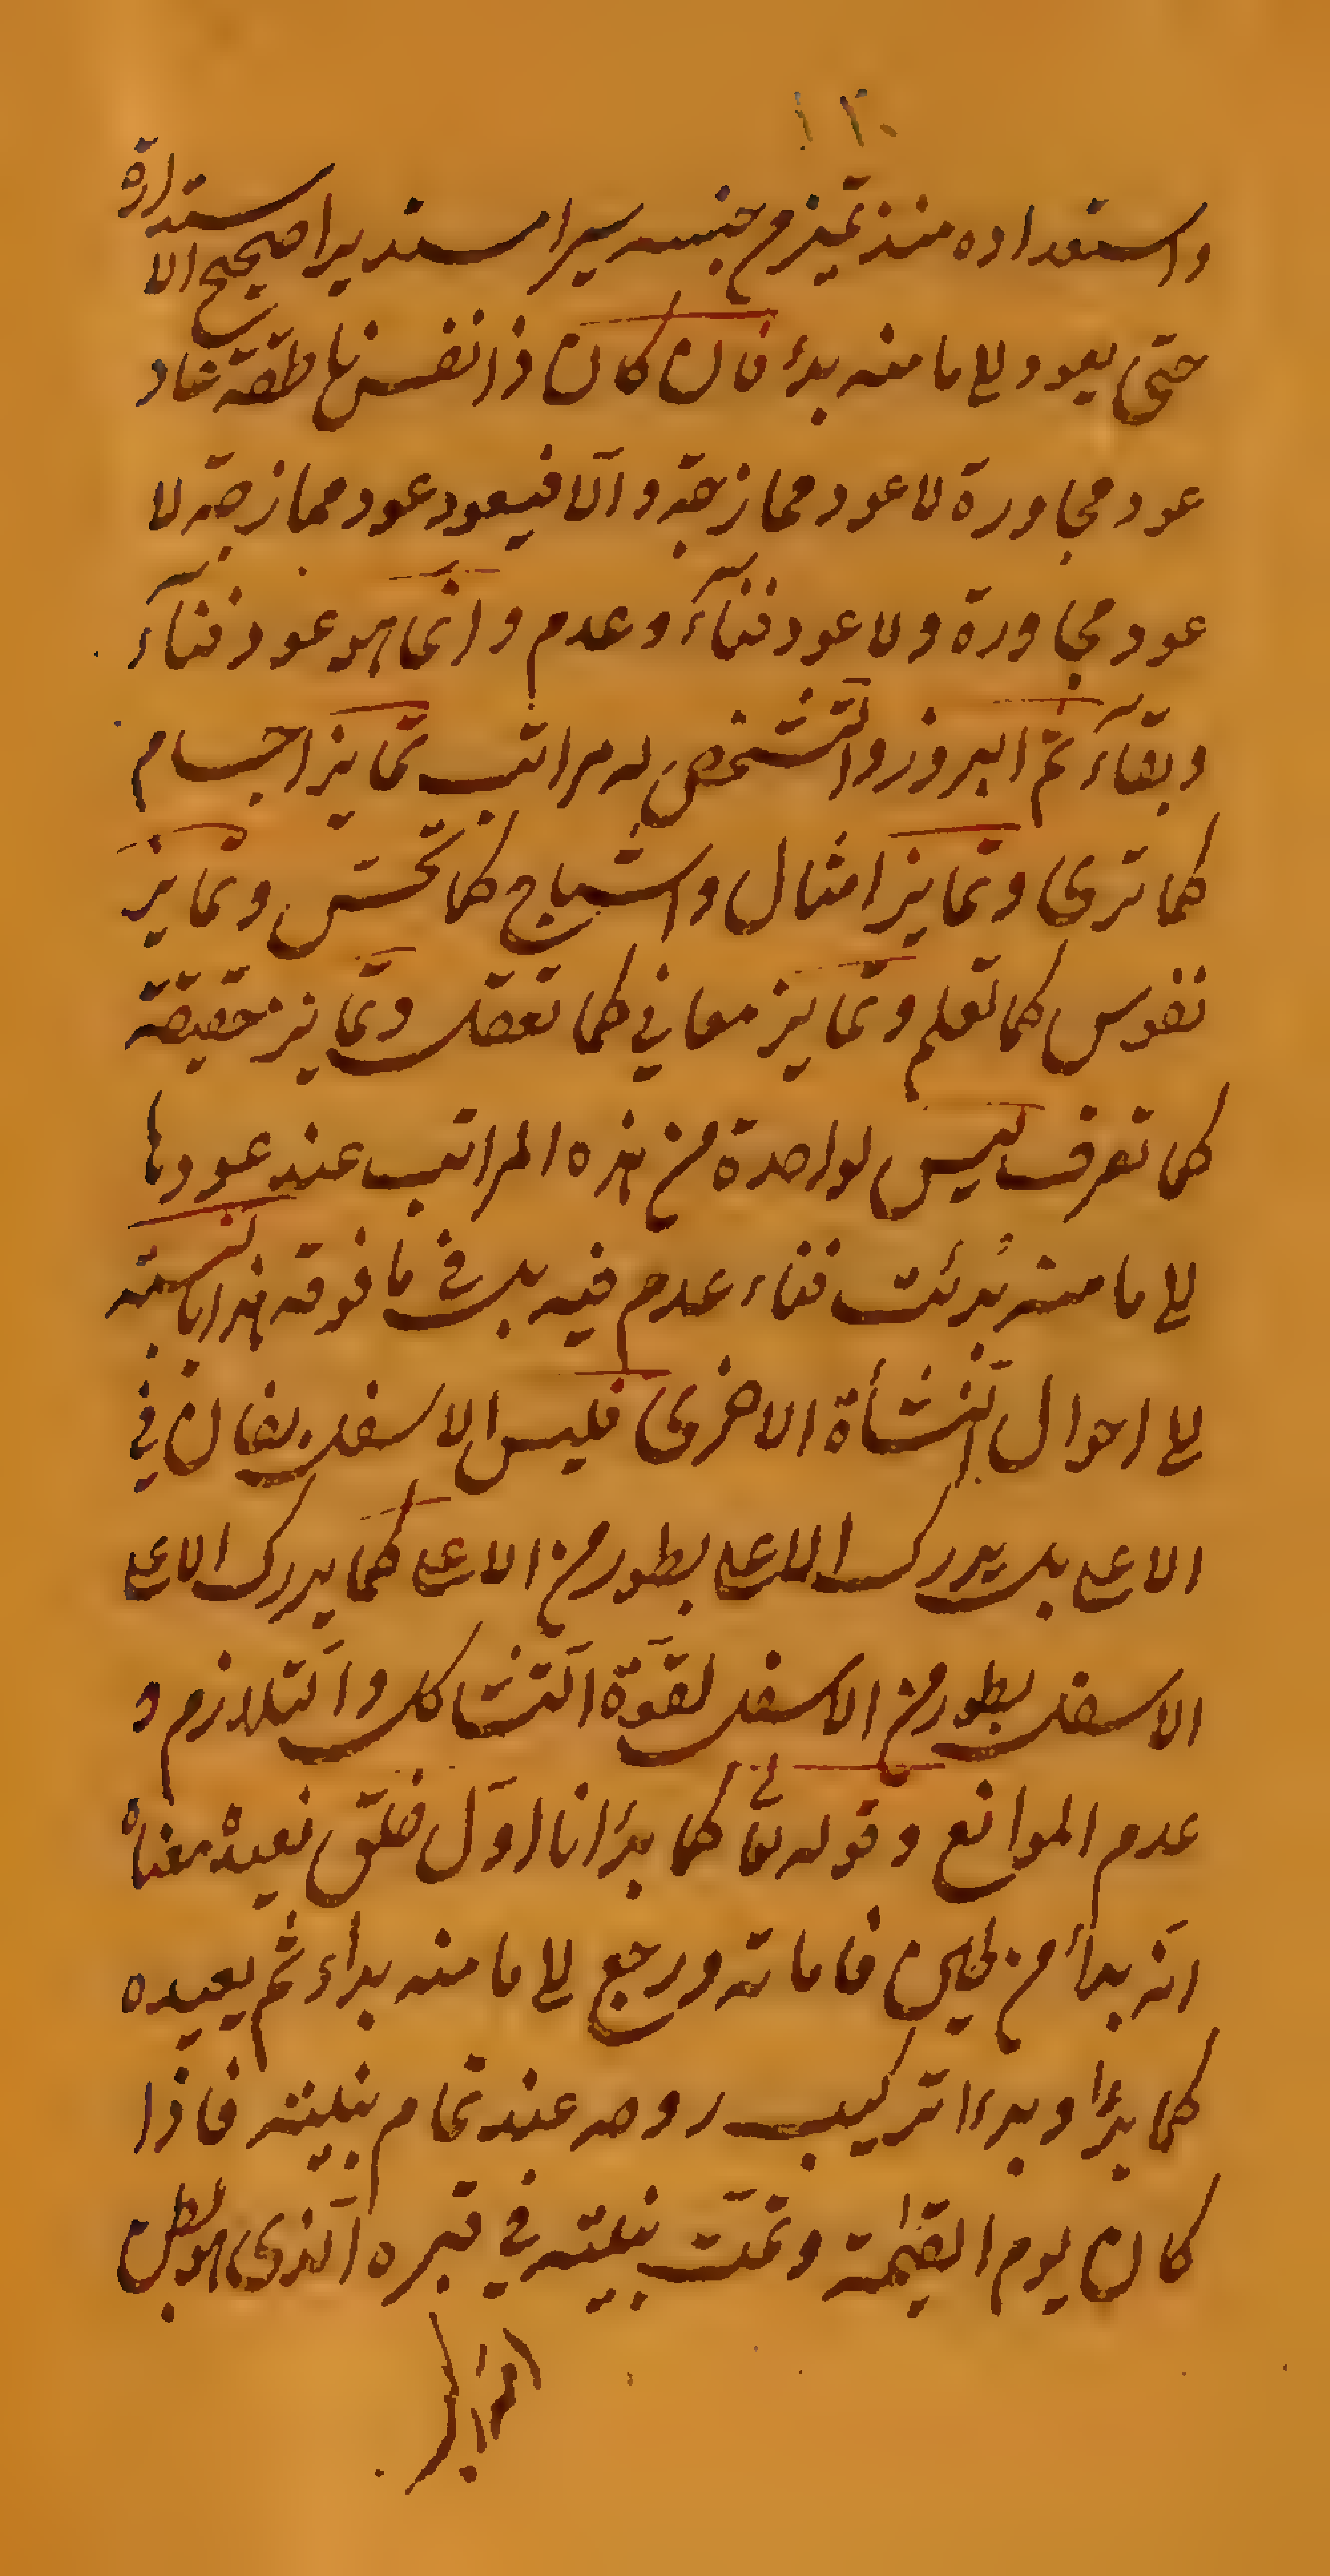 ١٢٠
واستعداده منذ تميز من جنسه سيرا مستديرا صحيح الاستدارة
حتى يعود الى ما منه بدئ فان كان ذا نفس ناطقة عاد
عود مجاورة لا عود ممازجة و الّا فيعود عود ممازجة لا
عود مجاورة ولا عود فنآء وعدم وانما هو عود فنآء
وبقآء ثم البروز والتشخص له مراتب تمايز اجسام
كما ترى وتمايز امثال واشباح كما تحس وتمايز
نفوس كما تعلم وتمايز معاني كما تعقل وتمايز حقيقة
كما تعرف ليس لواحدة من هذه المراتب عند عودها
الى ما منه بُدئت فناء عدم فيه بل في ما فوقه هذا بالنسبة
الى احوال النشأة الاخرى فليس الاسفل بفان في
الاعلى بل يدرك الاعلى بطور من الاعلى كما يدرك الاعلى
الاسفل بطور من الاسفل لقوّة التشاكل والتلازم و
عدم الموانع وقوله تعالى كما بدأنا اوّل خلق نعيده معناه
انّه بدأ من طين فاماته ورجع الى ما منه بدأه ثم يعيده
كما بدأ وبدءا تركيب روحه عند تمام بنيته فاذا
كان يوم القيمة وتمّت بنيته في قبره الذي هو بطن